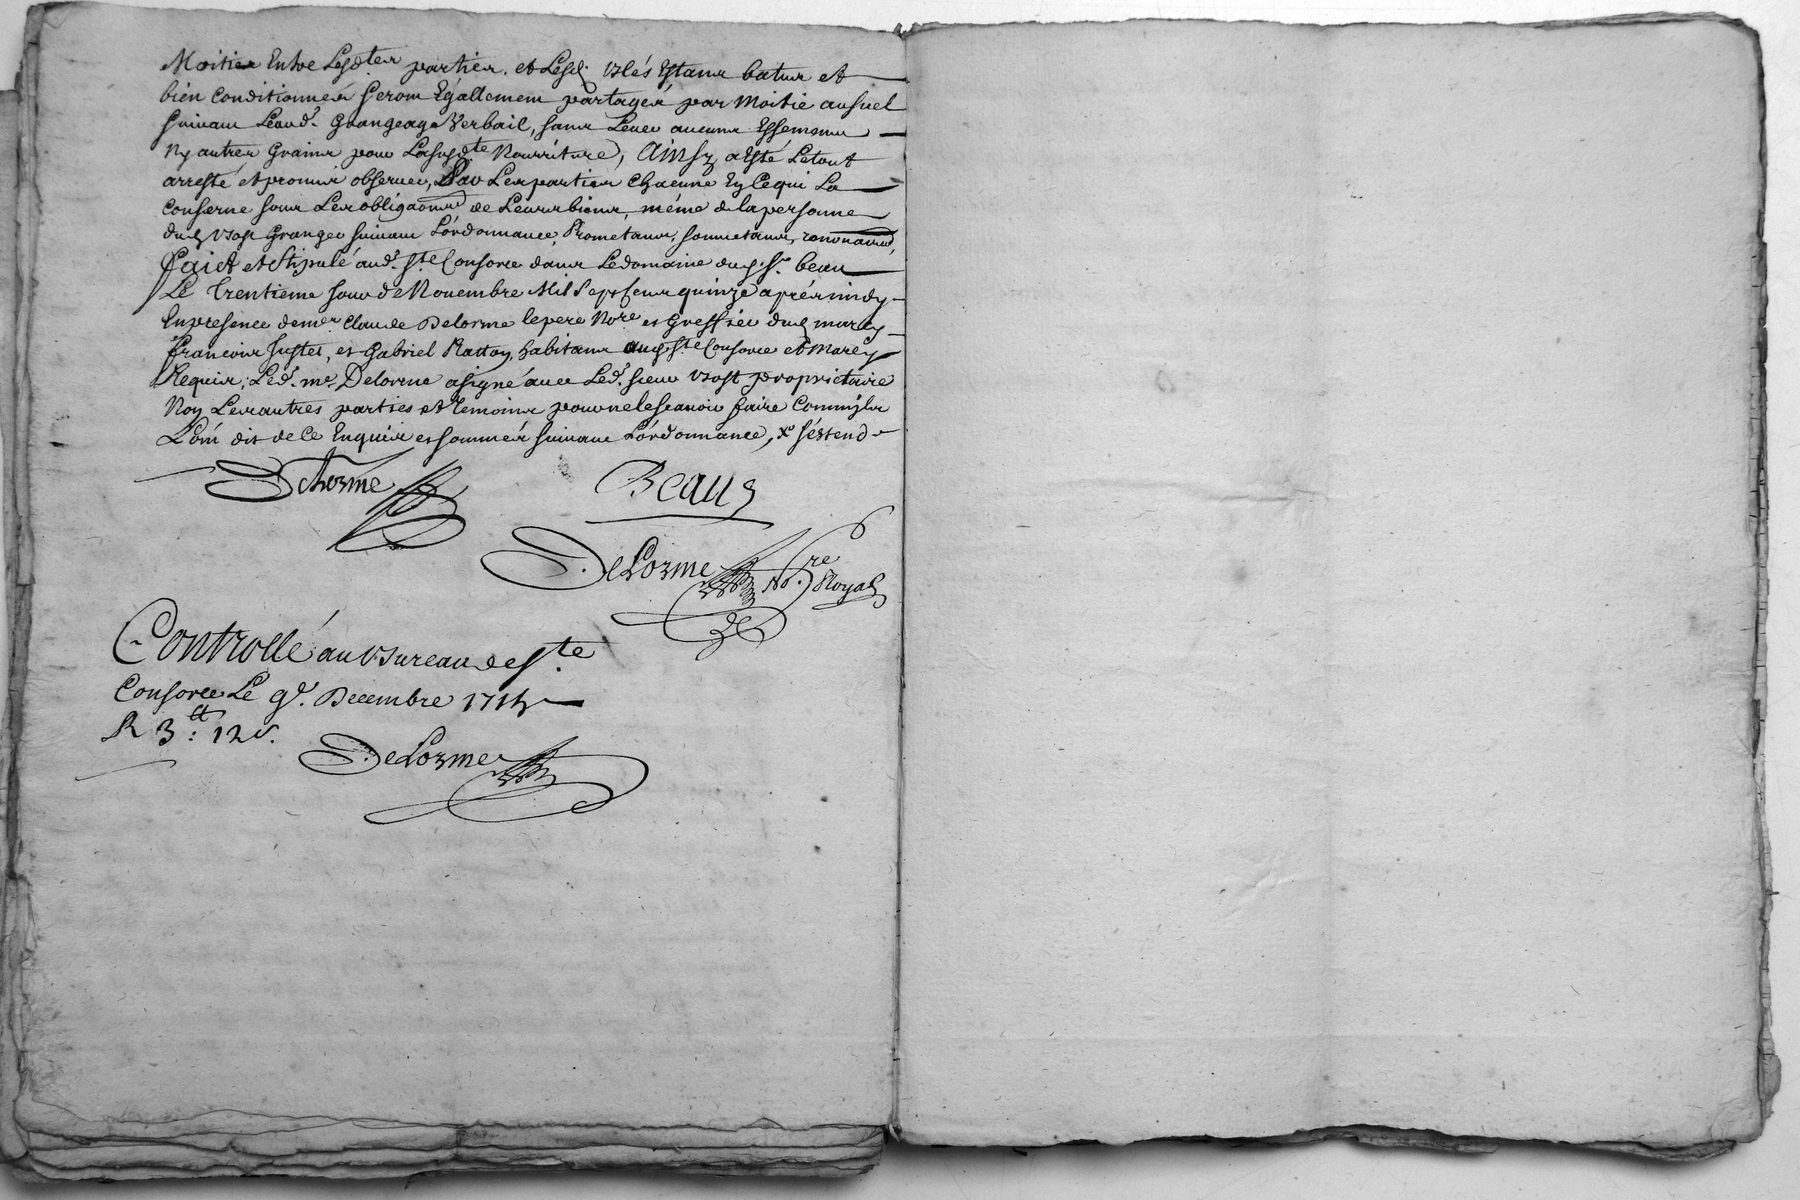 Moitier Entre Lesd.ter partier. et Lesd. blés Estanr batur et
bien conditionnér seront Egallement partagér par moitie annuel
suivant Led. Grangeage Verbail, sanr Lever aucune
Ny autrer Grainr pour Lasusd.te Nourriture, Ainsy a Esté Letout
arresté et promir observer, Par Lerpartier chacune En Cequi La
conserne sour Ler obliga͠onr de Leurrbienr, méme de la personne
dud. Granger suivant L'órdonnance, Prometanr, soumetanr, renonçanr,
Faict et Stipulé aud. S.te Consorce danr Ledomaine dud. S.r beau
Le trentieme Jour de Novembre Mil Sept Cenr quinze aprér midy
En presence de m.er Claude Delorme le pere No.re et Greffier dud. marcy
francoir Juster, et Gabriel Rattoy, habitanr aud. S.te Consorce et Marcy
Requir; Led. m.e Delorme a signé avec Led. sieur propriétaire
Noy Lerautres parties et temoinr pour ne le scavoir faire comm'ils
L'ont dit de Ce Enquir et sommér suivant L'órdonnance, s'estend
DeLorme
Beau
DeLorme No.re Royal
Controllé au Bureau de S.te
Consorce Le 9.e Decembre 1715
R 3 tt : 12 s.
DeLorme